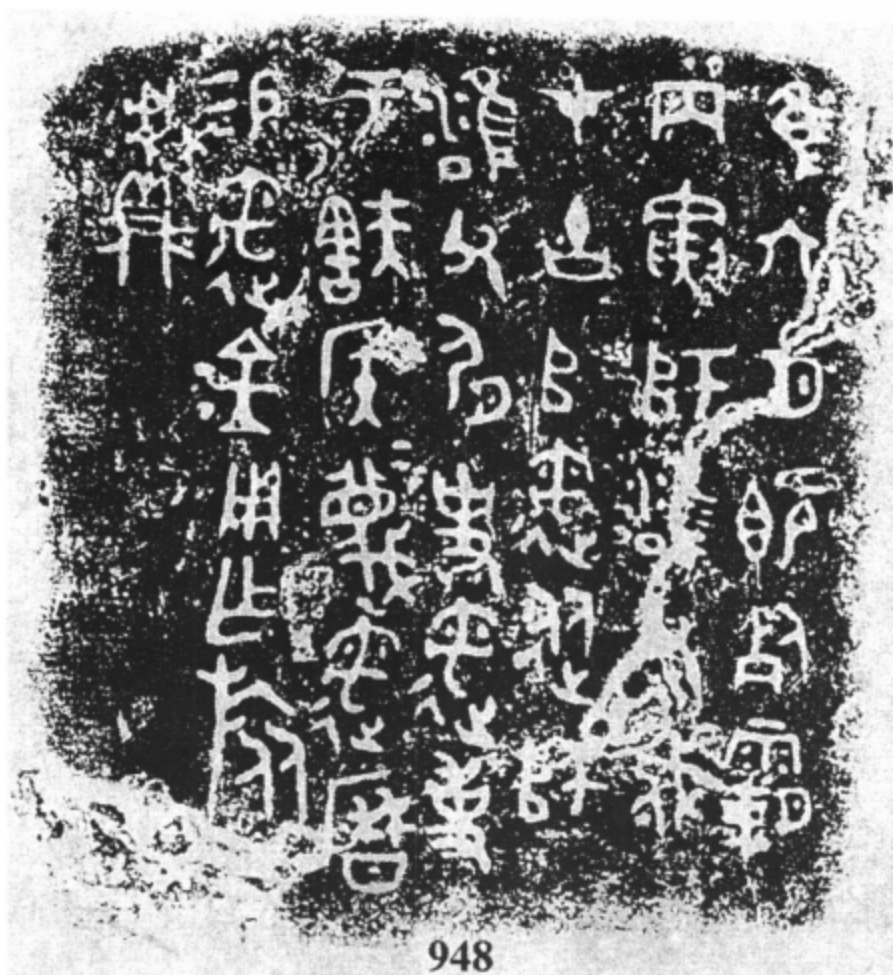 隹六月既死霸
丙寅師雍父戍
才古𠂤遇從師
雍父肩史遇事
于㝬侯=蔑遇曆
易遇金用乍旅
甗